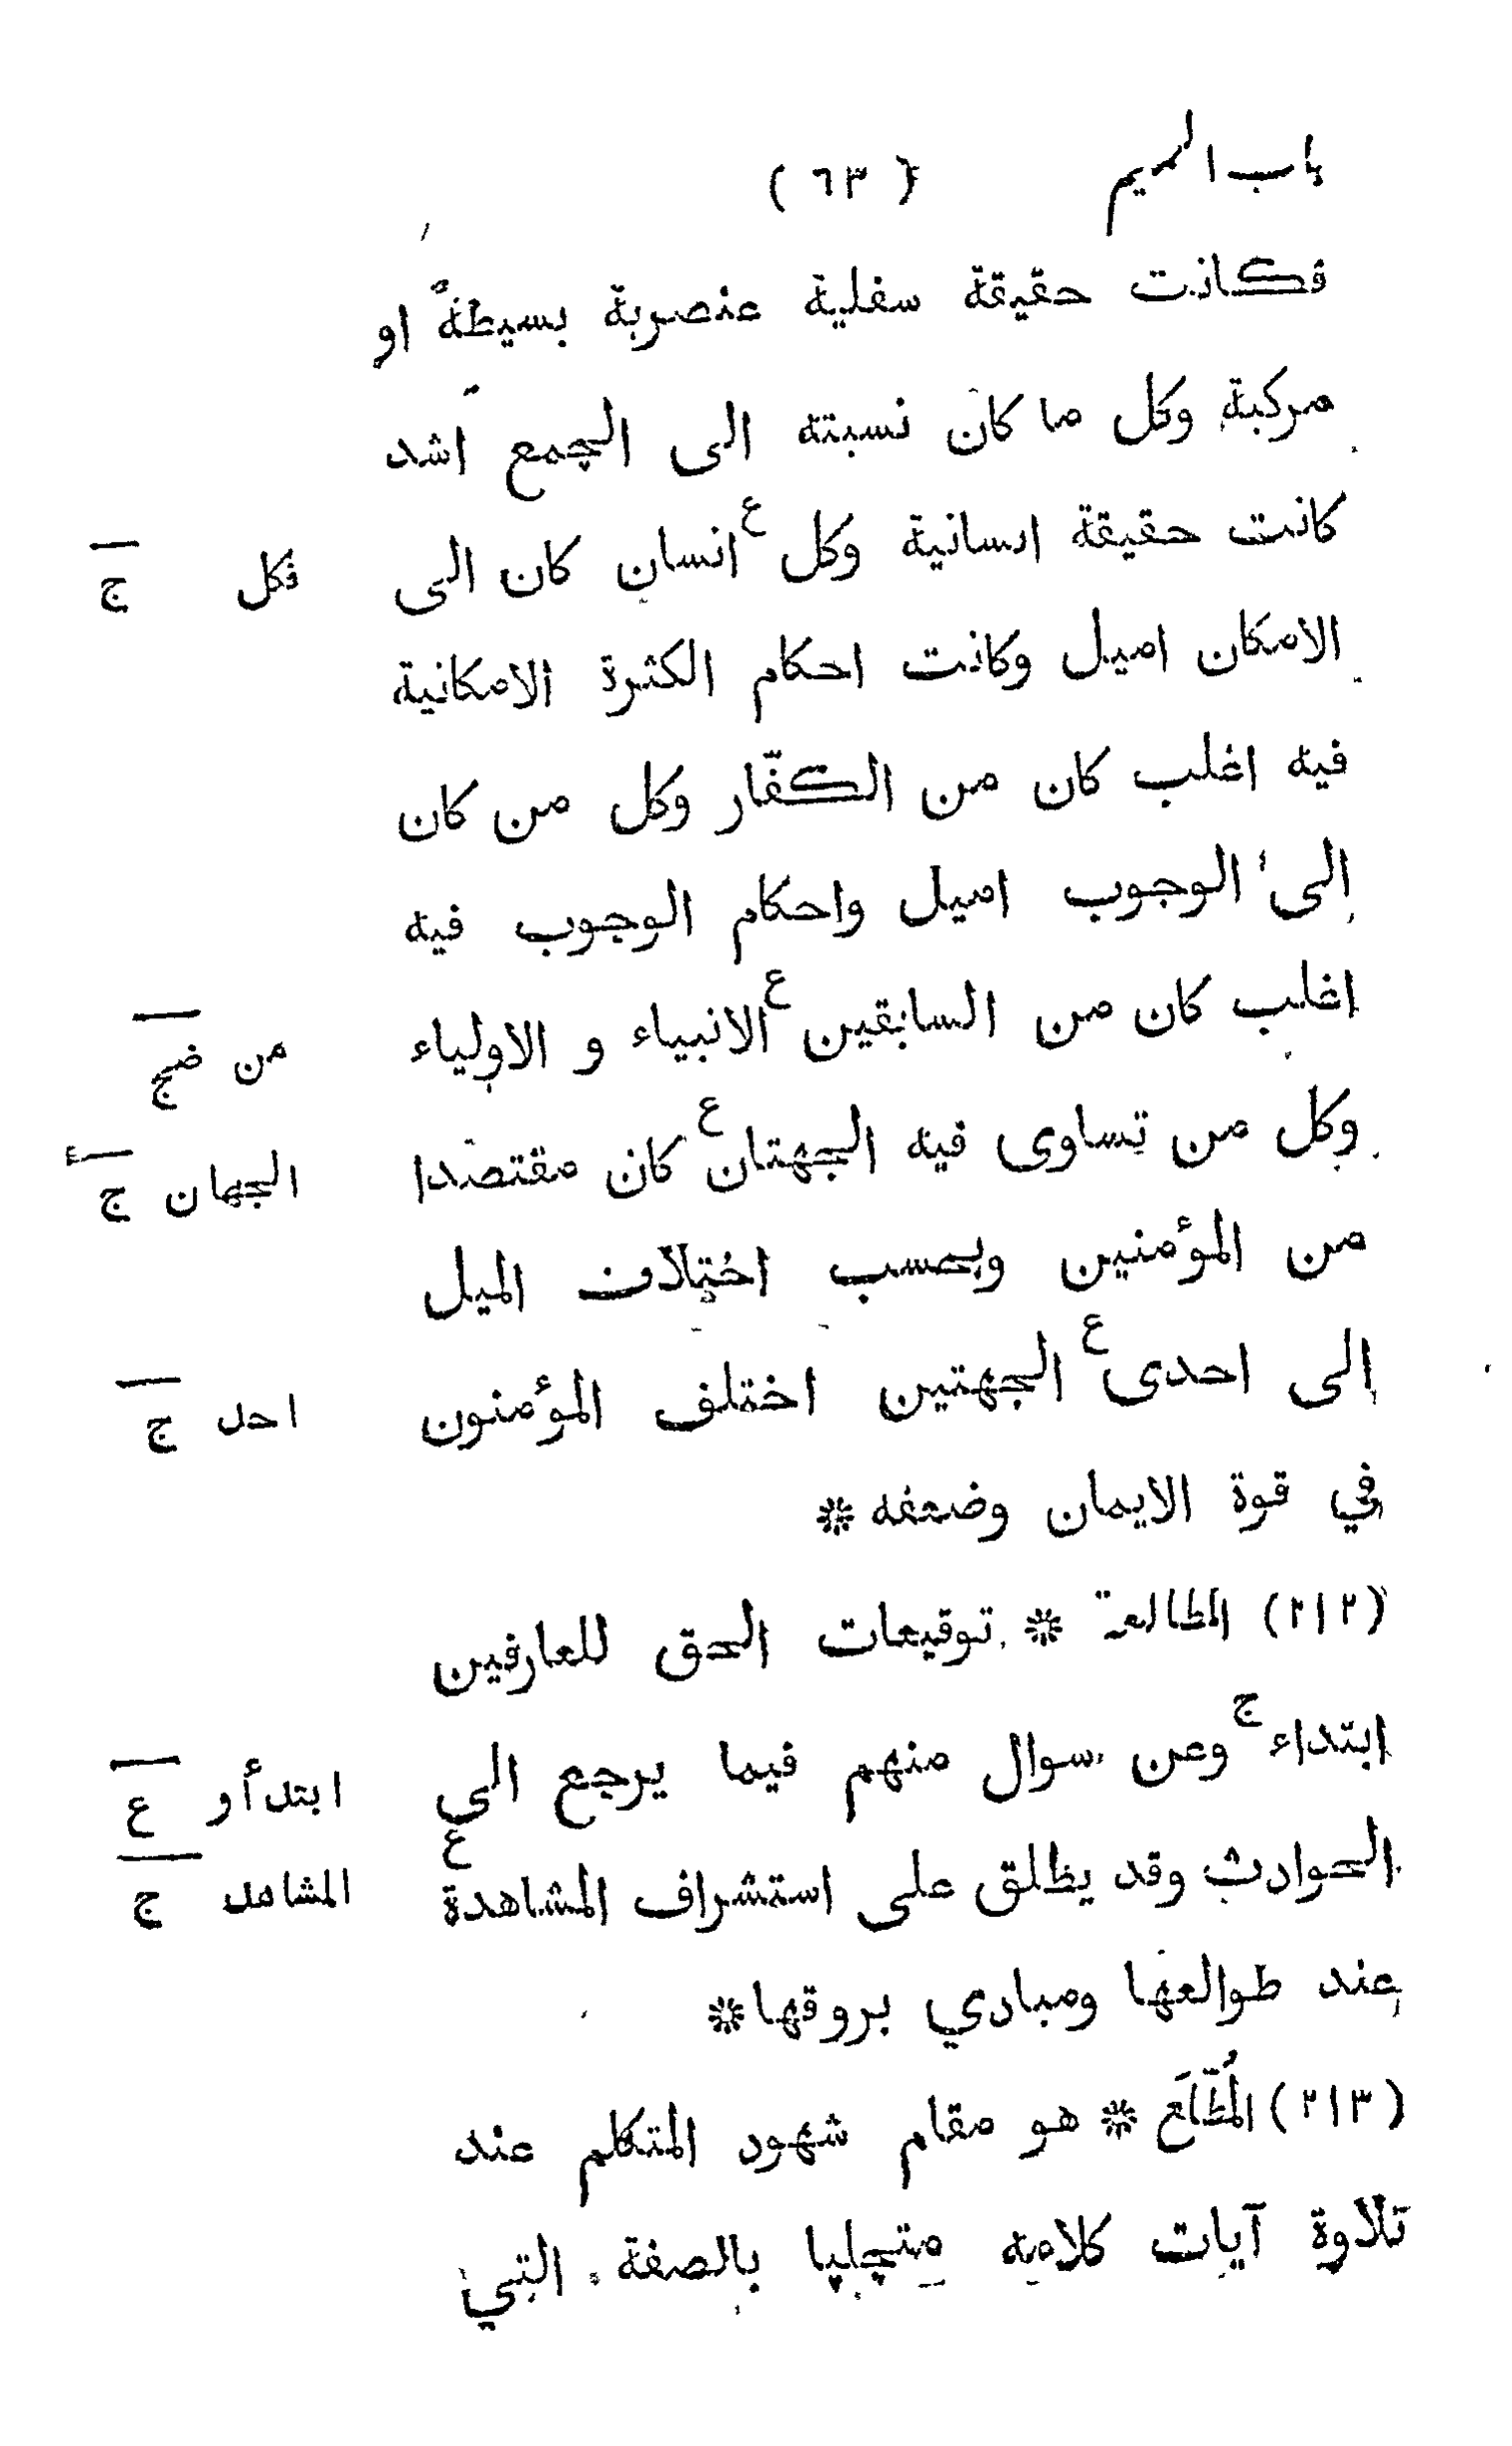 باب الميم ( ٦٣ )
فكانت حقيقة سفلية عنصرية بسيطةً او
مركبة وكل ما كان نسبته الى الجمع اشد
كانت حقيقة انسانية وكل ع انسان كان الى فكل ج
الامكان اميل وكانت احكام الكثرة الامكانية
فيه اغلب كان من الكفّار وكل من كان
الى الوجوب اميل واحكام الوجوب فيه
اغلب كان من السابقين ع الانبياء و الاولياء من ج
وكل من تساوى فيه الجهتان ع كان مقتصدا الجهان ج
من المؤمنين وبحسب اختلاف الميل
الى احدى ع الجهتين اختلف المؤمنون احد ج
في قوة الايمان وضعفه *
(٢١٢) المطالعة * توقيعات الحق للعارفين
ابتداء ج وعن سوال منهم فيما يرجع الى ابتدأ و ع
الحوادث وقد يطلق على استشراف المشاهدة ع المشاهد ج
عند طوالعها ومبادي بروقها *
(٢١٣) المُطَّلَع * هو مقام شهود المتكلم عند
تلاوة آيات كلامه متجليا بالصفة التي